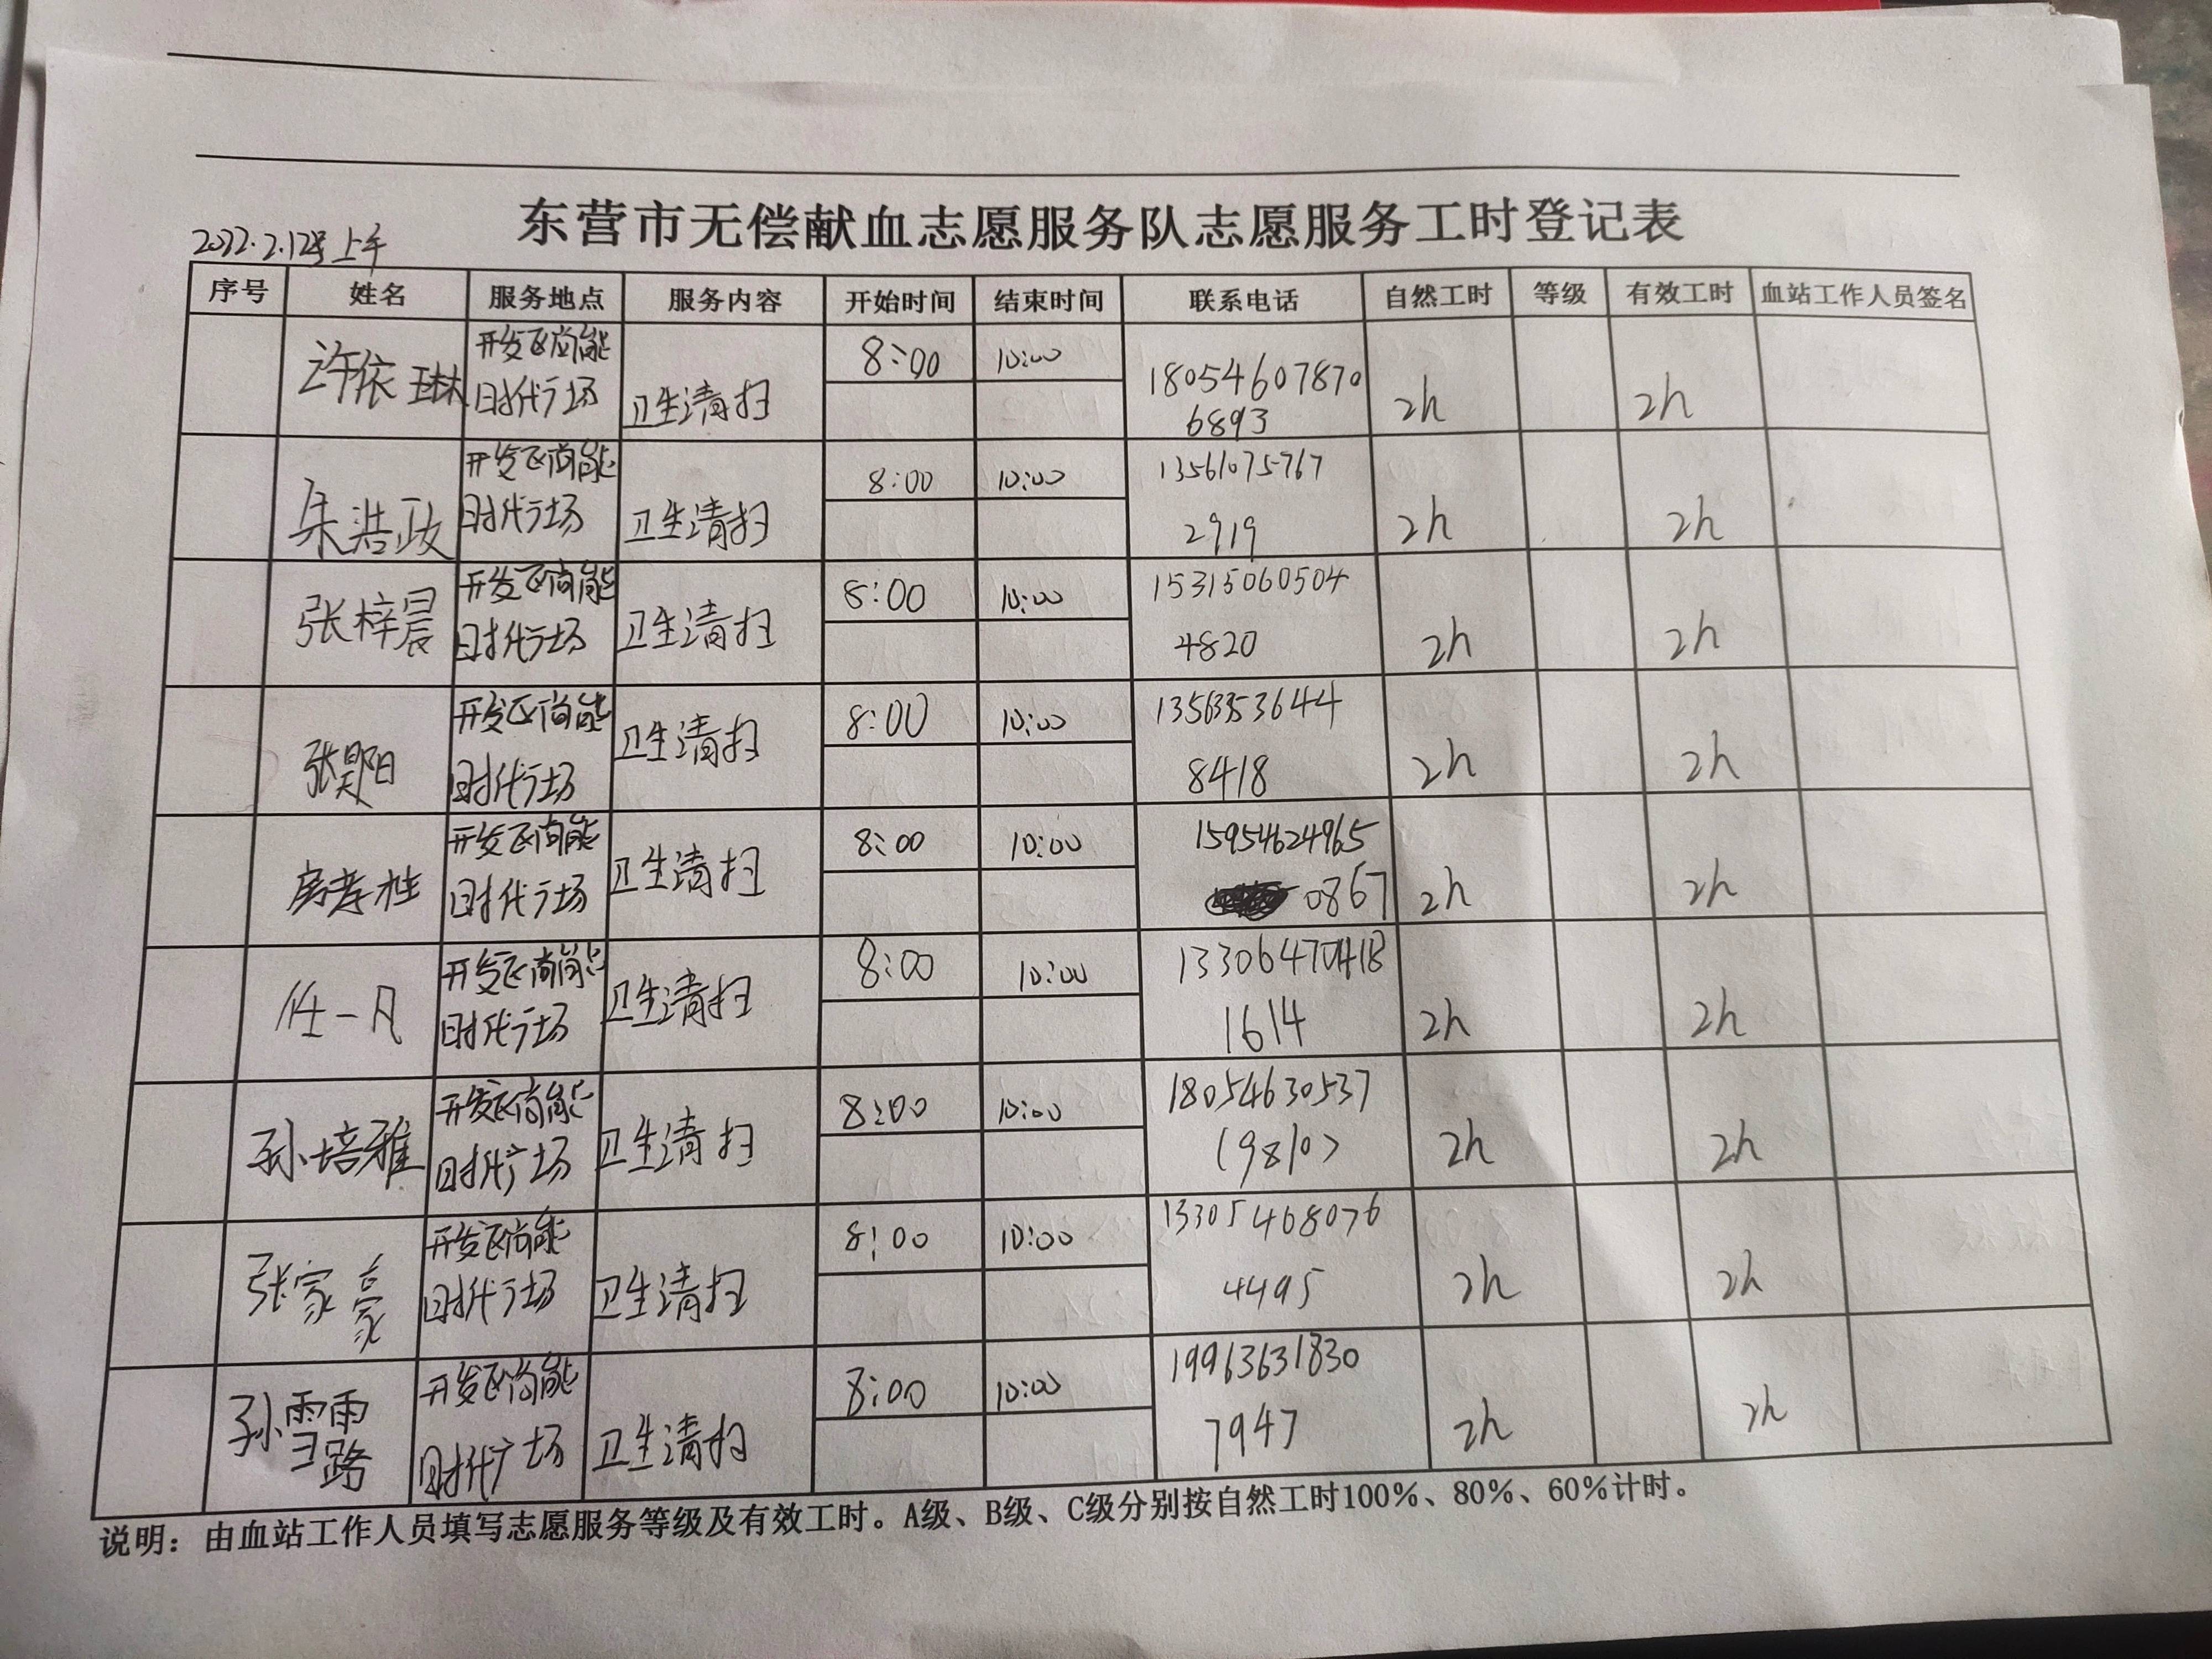 东营市无偿献血志愿服务队志愿服务工时登记表
2022.2.12号上午
序号 姓名 服务地点 服务内容 开始时间 结束时间 联系电话 自然工时 等级 有效工时 血站工作人员签名
许依琳 开发区尚能时代广场 卫生清扫 8:00 10:00 18054607870 6893 2h 2h
朱浩政 开发区尚能时代广场 卫生清扫 8:00 10:00 13561075767 2919 2h 2h
张梓晨 开发区尚能时代广场 卫生清扫 8:00 10:00 15315060504 4820 2h 2h
张昊阳 开发区尚能时代广场 卫生清扫 8:00 10:00 8418 2h 2h
房孝柱 开发区尚能时代广场 卫生清扫 8:00 10:00 15954624965 0867 2h 2h
任一凡 开发区尚能时代广场 卫生清扫 8:00 10:00 1614 2h 2h
孙培雅 开发区尚能时代广场 卫生清扫 8:00 10:00 18054630537 (9810) 2h 2h
张家豪 开发区尚能时代广场 卫生清扫 8:00 10:00 13305468076 4495 2h 2h
孙雪路 开发区尚能时代广场 卫生清扫 8:00 10:00 19963631830 7947 2h 2h
说明：由血站工作人员填写志愿服务等级及有效工时。A级、B级、C级分别按自然工时100%、80%、60%计时。